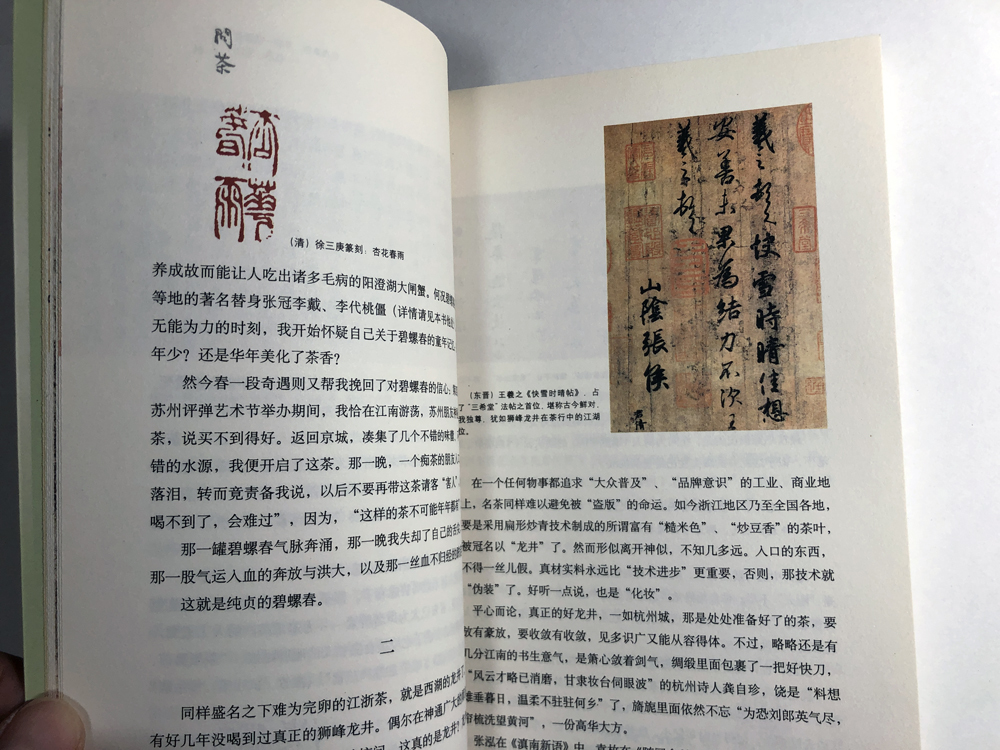 問茶
杏花春雨
（清）徐三庚篆刻：杏花春雨
养成故而能让人吃出诸多毛病的阳澄湖大闸蟹。何况
等地的著名替身张冠李戴、李代桃僵（详情请见本书他
无能为力的时刻，我开始怀疑自己关于碧螺春的童年记忆
年少？还是华年美化了茶香？
然今春一段奇遇则又帮我挽回了对碧螺春的信心：
苏州评弹艺术节举办期间，我恰在江南游荡，苏州朋友
茶，说买不到得好。返回京城，凑集了几个不错的味
错的水源，我便开启了这茶。那一晚，一个痴茶的朋友
落泪，转而竟责备我说，以后不要再带这茶请客“害人”
喝不到了，会难过”，因为，“这样的茶不可能年年都
那一罐碧螺春气脉奔涌，那一晚我失却了自己的
那一股气运入血的奔放与洪大，以及那一丝血不归经的
这就是纯贞的碧螺春。
二
同样盛名之下难为完卵的江浙茶，就是西湖的龙井了
有好几年没喝到过真正的狮峰龙井。偶尔在神通广大的
这真的是龙井？
羲之頓首快雪時晴佳想
安善未果為結力不次王
羲之頓首
山陰張侯
（东晋）王羲之《快雪时晴帖》，占
了“三希堂”法帖之首位，堪称古今解对、
我独尊，犹如狮峰龙井在茶行中的江湖
位。
在一个任何物事都追求“大众普及”、“品牌意识”的工业、商业地
上，名茶同样难以避免被“盗版”的命运。如今浙江地区乃至全国各地，
要是采用扁形炒青技术制成的所谓富有“糙米色”、“炒豆香”的茶叶，
被冠名以“龙井”了。然而形似离开神似，不知几多远。人口的东西，
不得一丝儿假。真材实料永远比“技术进步”更重要，否则，那技术就
“伪装”了。好听一点说，也是“化妆”。
平心而论，真正的好龙井，一如杭州城，那是处处准备好了的茶，要
放有豪放，要收敛有收敛，见多识广又能从容得体。不过，略略还是有
几分江南的书生意气，是箫心敛着剑气，绸缎里面包裹了一把好快刀，
“风云才略已消磨，甘隶妆台伺眼波”的杭州诗人龚自珍，饶是“料想
难垂暮日，温柔不驻驻何乡”了，旖旎里面依然不忘“为恐刘郎英气尽，
帘梳洗望黄河”，一份高华大方。
张泓在《滇南新语》中，袁枚在《随园